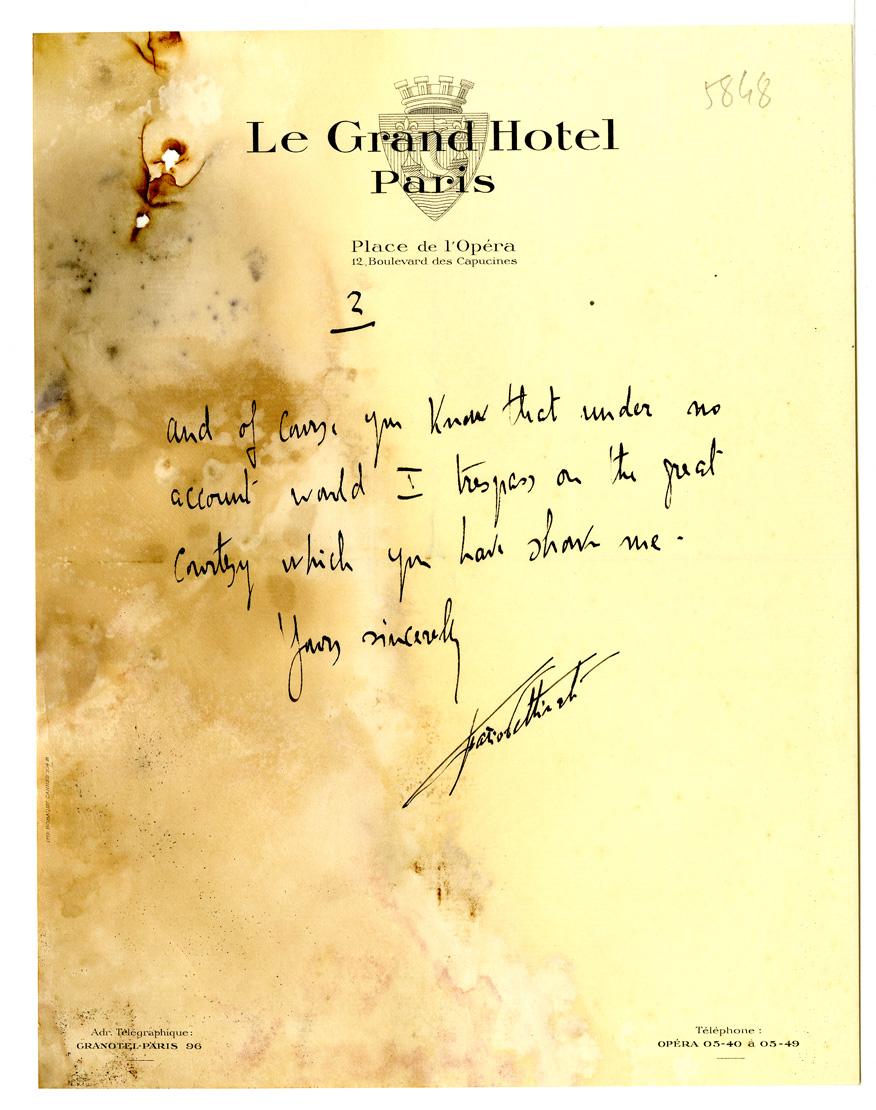 5848
Le Grand Hotel
Paris
Place de l'Opéra
12, Boulevard des Capucines
2
and of course you know that under no
account would I trespass on the great
courtesy which you have shown me.
Yours sincerely
Adr. Télégraphique:
GRANOTEL-PARIS 96
Téléphone:
OPÉRA 05-40 à 05-49